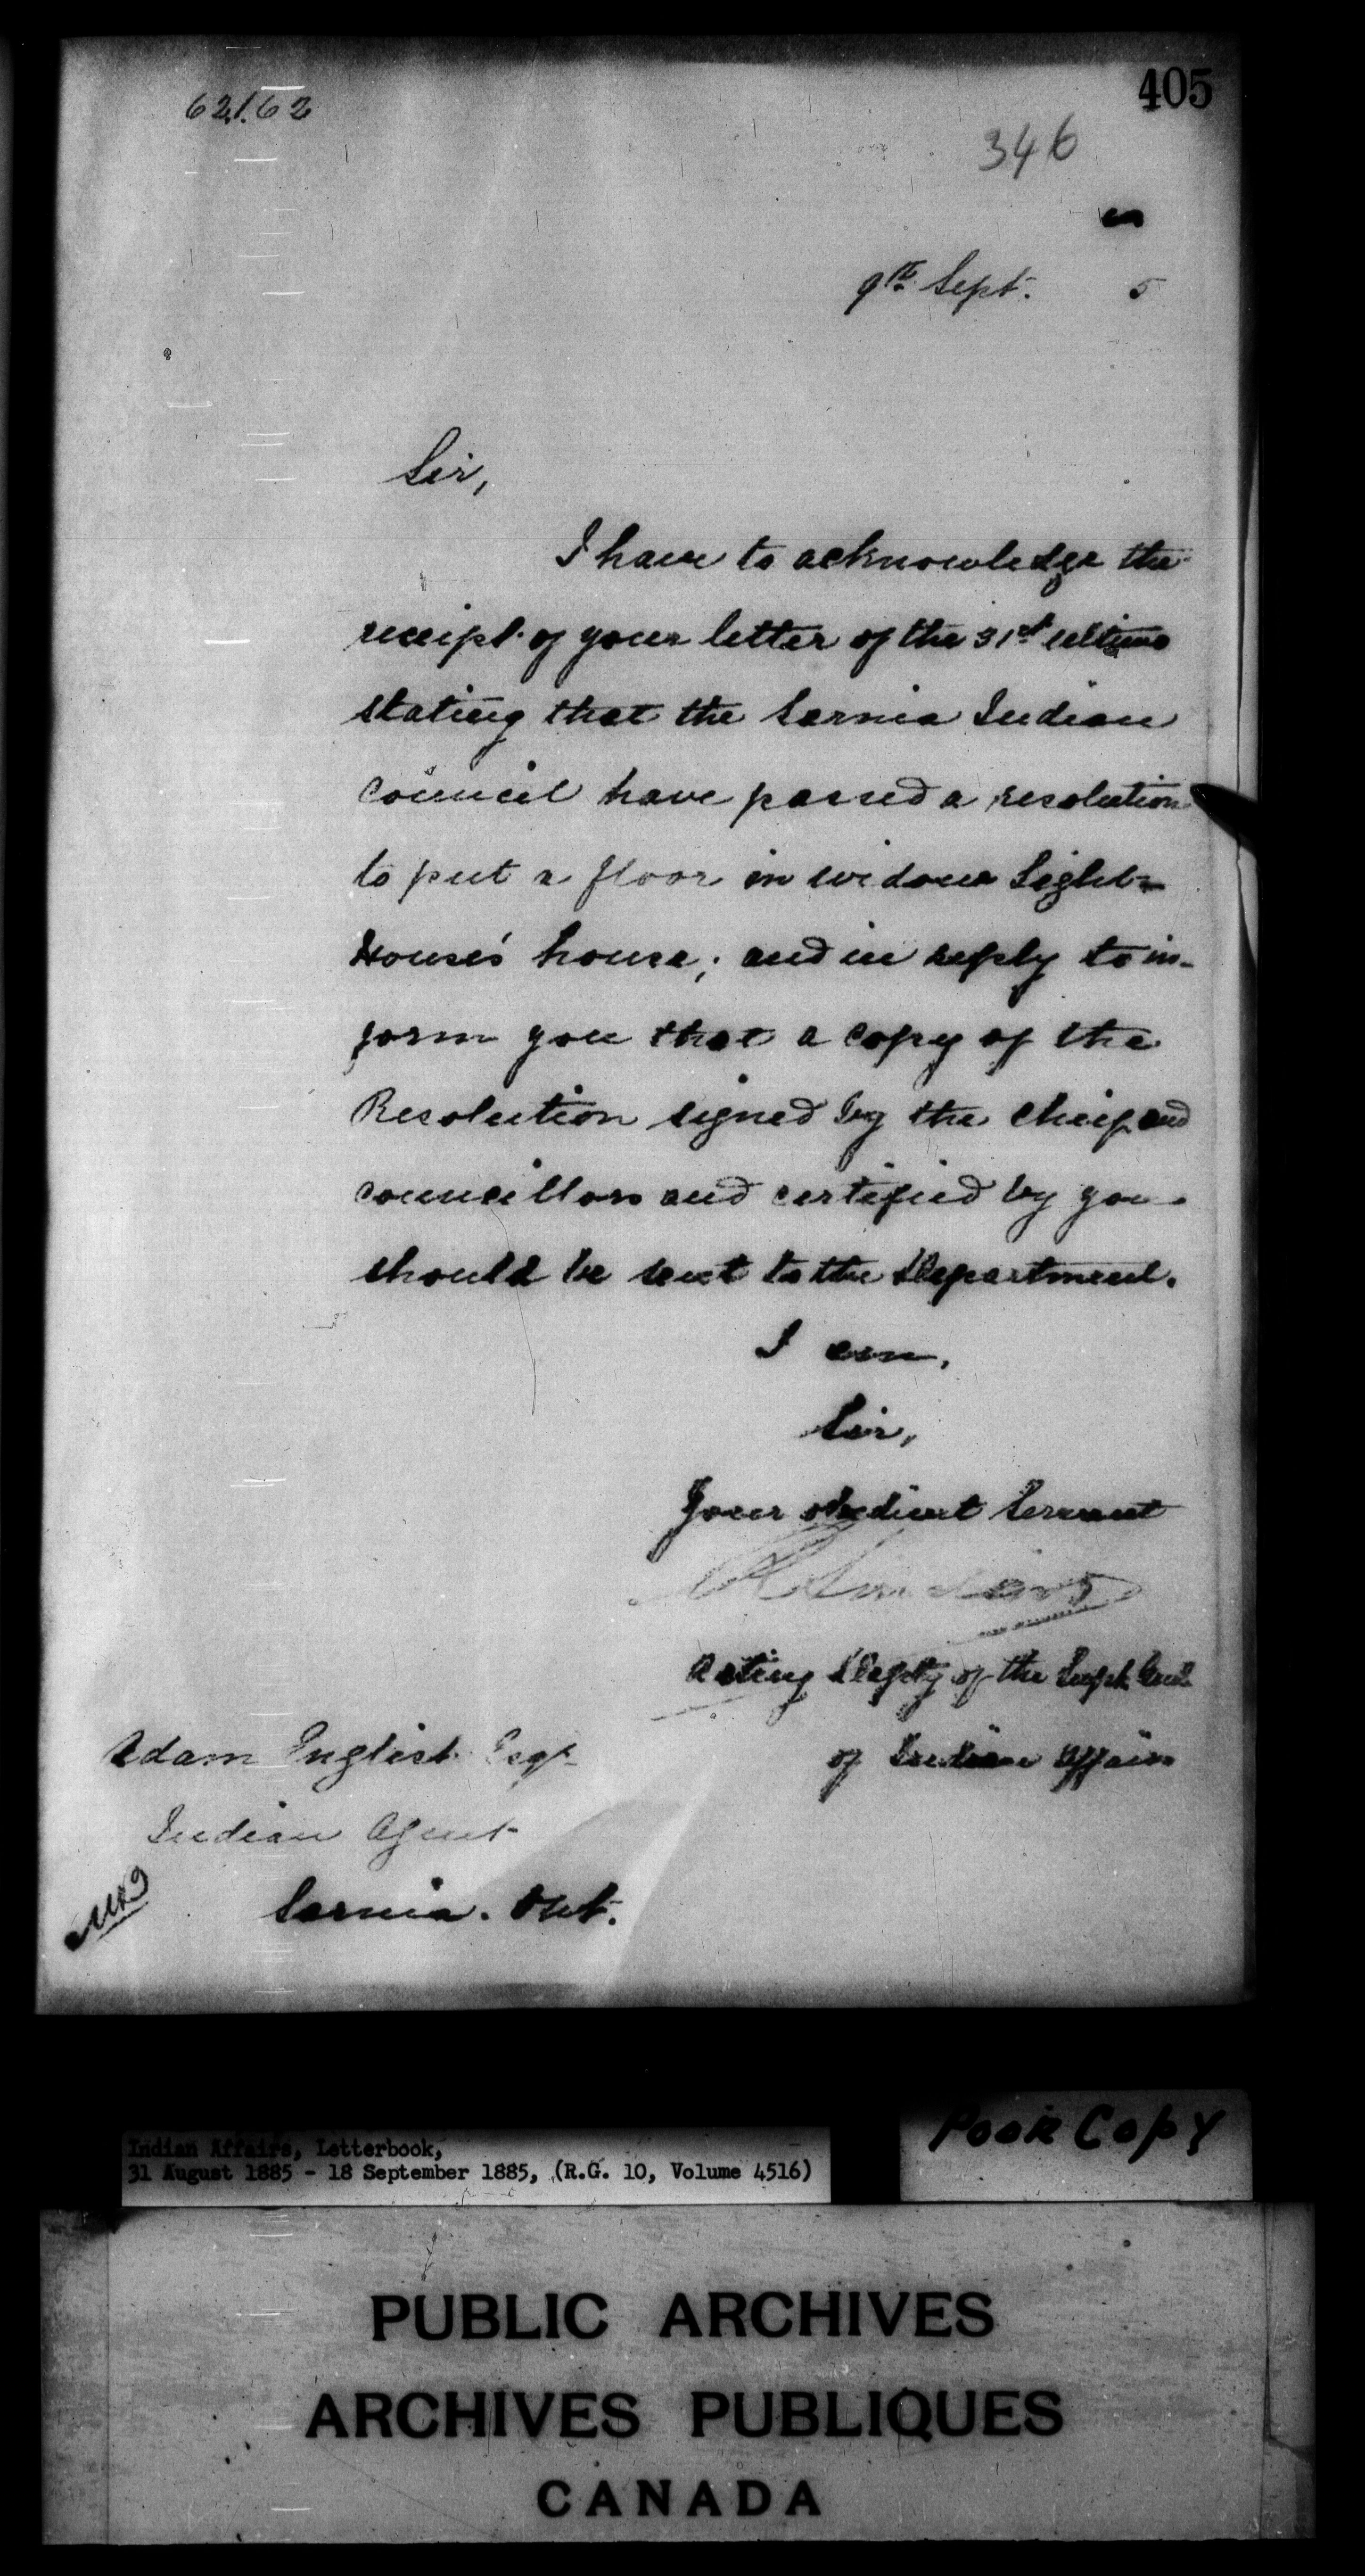 405
62,162
346
9th Sept. 5
Sir,
I have to acknowledge the
receipt of your letter of the 31st ultimo
stating that the Sarnia Indian
Council have passed a resolution
to put a floor in widow Light-
House's house; and in reply to in-
form you that a copy of the
Resolution signed by the Chief and
Councillors and certified by you
should be sent to the Department.
I am,
Sir,
Your obedient Servant
Acting Deputy of the Supt. Genl.
of Indian Affairs
Adam English Esqr
Indian Agent
Sarnia. Ont.
Indian Affairs, Letterbook,
31 August 1885 - 18 September 1885, (R.G. 10, Volume 4516)
Poor Copy
PUBLIC ARCHIVES
ARCHIVES PUBLIQUES
CANADA